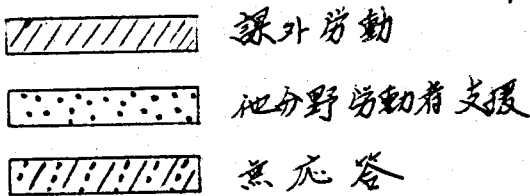 課外労動
他分野労動者支援
無応答